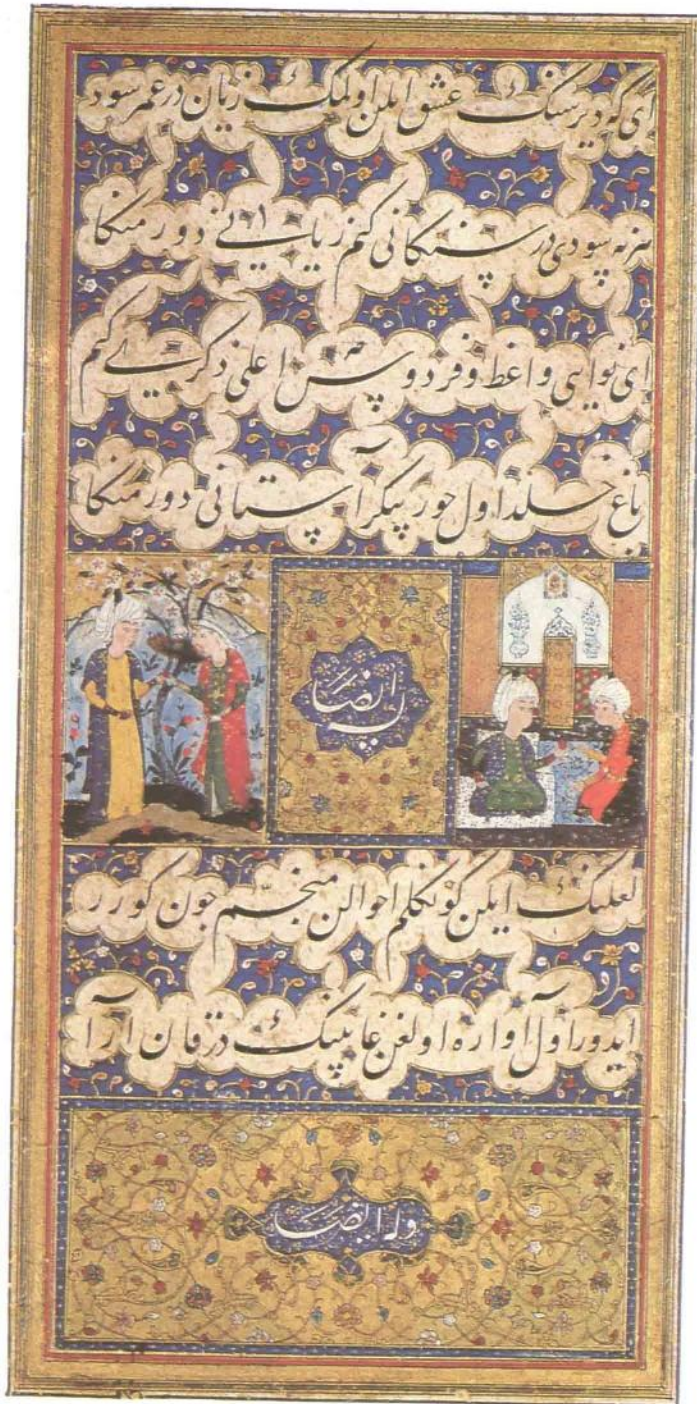 ای که دیرسنک عشق ایلن اولمک زیان در عمر سود
نی سودی در سنکا نی کم زیانی دور منکا
ای نوایی واعظ و فردوس اعلی ذکری کم
باغ خلد اول حور پیکر آستانی دور منکا
وله ایضا
لعلینک ایلن کونکلم احوالن منجم چون کورر
ایدور اول آواره اولغن غایبینک در قان ارا
وله ایضا